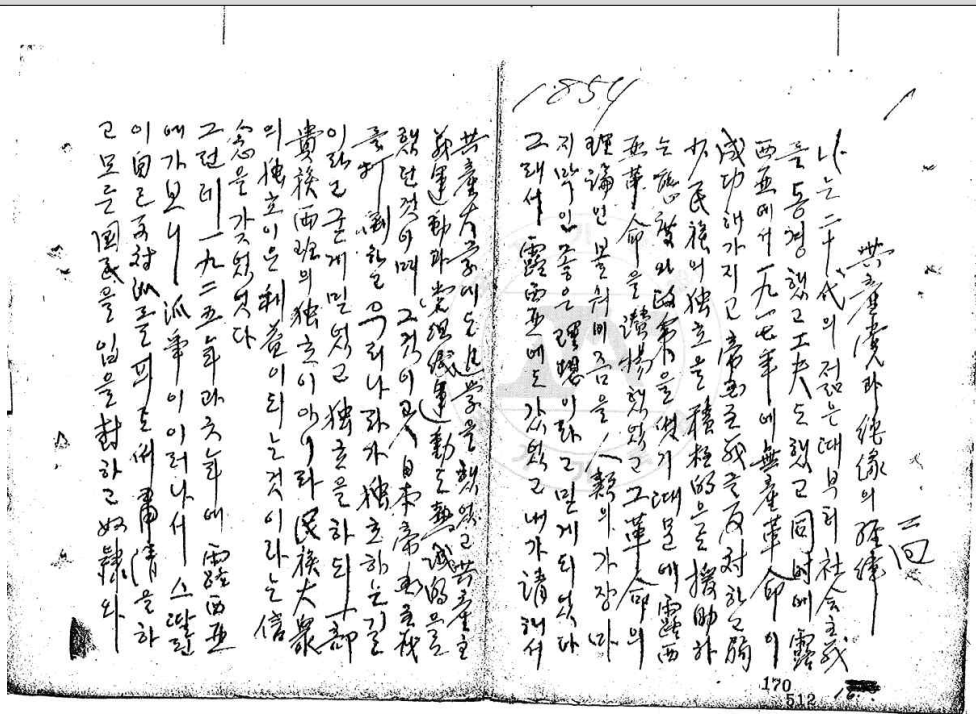 1854
二回
共産党과 絶緣의 經緯
나는 二十代의 젊은때부터 社会主義
를 동경했고 工夫도 했고 同时에 露
西亜에서 一九一七年에 無産革命이
成功해가지고 帝国主義를 反対하고 弱
少民族의 独立을 積極的으로 援助하
는 態度와 政策을 썼기 때문에 露西
亜革命을 讃揚했었고 그 革命의
理論인 볼쉬비즘을 人類의 가장 마
지막인 좋은 理想이라고 믿게되었다
그래서 露西亜에도 갔었고 내가 請해서
共産大学에도 入学을 했었고 共産主
義運動과 党組織運動도 熱誠的으로
했던것이며 그것이 곧 日本帝国主義
를 打倒하고 우리나라가 独立하는 길
이라고 굳게 믿었고 独立을 하되 一部
貴族両班의 独立이 아니라 民族大衆
의 独立이은 利益이 되는것이라는 信
念을 가졌었다
그런데 一九二五年과 六年에 露西亜
에가보니 派爭이 이러나서 스딸린
이 自己反対派를 피로써 肅清을 하
고 모든 国民을 입을 封하고 奴隷와
170
512